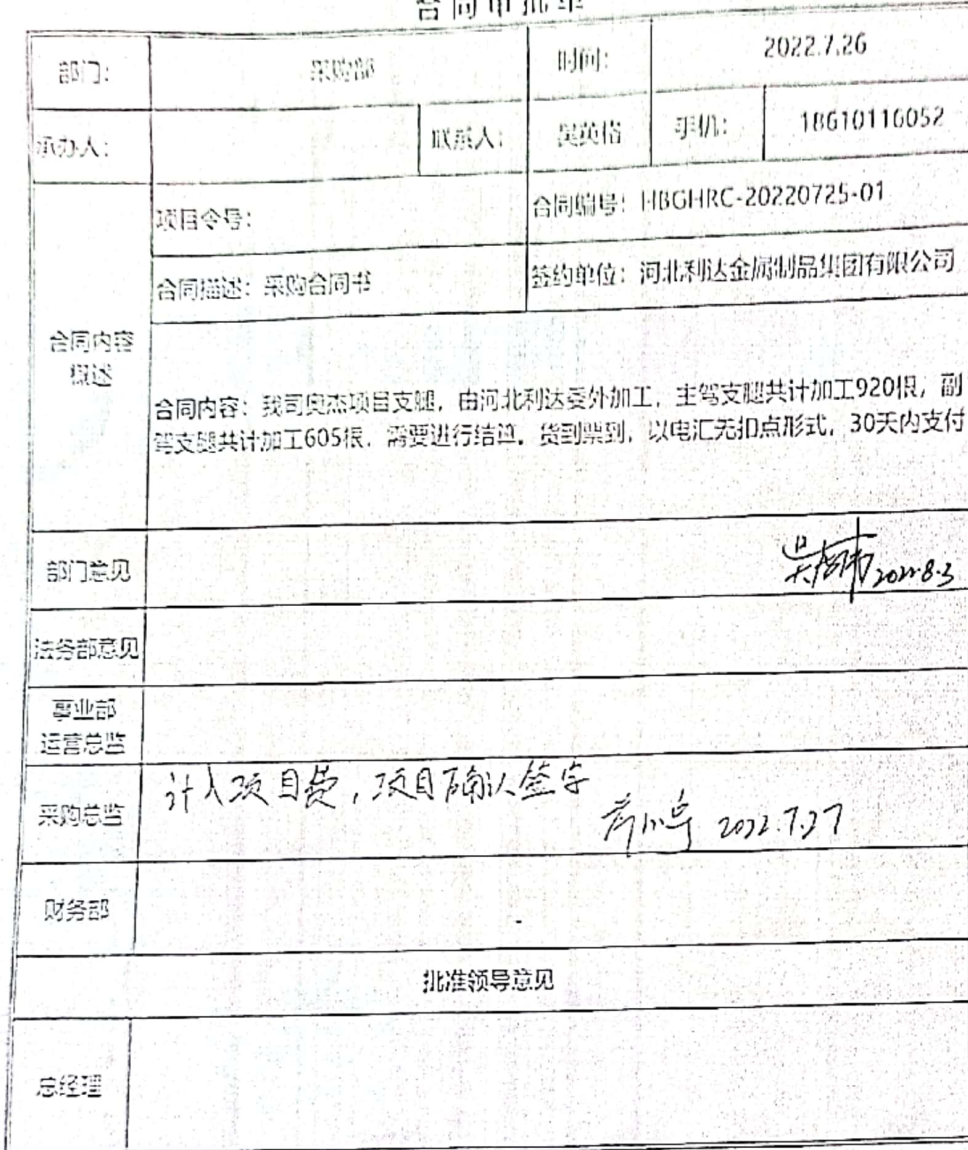 合同审批单
部门： 采购部 时间： 2022.7.26
承办人： 联系人： 手机： 18610116052
项目令号： 合同编号：HBGHRC-20220725-01
合同描述：采购合同书 签约单位：河北利达金属制品集团有限公司
合同内容
概述
合同内容：我司奥杰项目支腿，由河北利达委外加工，主驾支腿共计加工920根，副
驾支腿共计加工605根，需要进行结算。货到票到，以电汇无扣点形式，30天内支付
部门意见 2022.8.3
法务部意见
事业部
运营总监
计入项目费，项目确认签字
采购总监 2022.7.27
财务部
批准领导意见
总经理